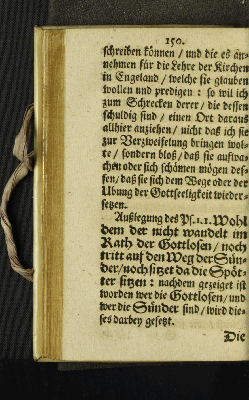 150.
schreiben können / und die es an-
nehmen für die Lehre der Kirchen
in Engeland / welche sie glauben
wollen und predigen: so wil ich
zum Schrecken derer / die dessen
schuldig sind / einen Ort daraus
allhier anziehen / nicht daß ich sie
zur Verzweifelung bringen wol-
te / sondern bloß / daß sie aufwa-
chen oder sich schämen mögen des-
sen / daß sie sich dem Wege oder der
Ubung der Gottseeligkeit wieder-
setzen.
Außlegung des Ps. 1. 1. Wohl
dem der nicht wandelt im
Rath der Gottlosen / noch
tritt auf den Weg der Sün-
der / noch sitzet da die Spöt-
ter sitzen: nachdem gezeiget ist
worden wer die Gottlosen / und
wer die Sünder sind / wird die-
ses darbey gesetzt.
Die